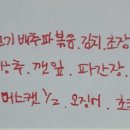 고기 배추파볶음. 김치. 초장
상추. 깻잎. 파간장.
머스캣 1/2. 오징어. 초